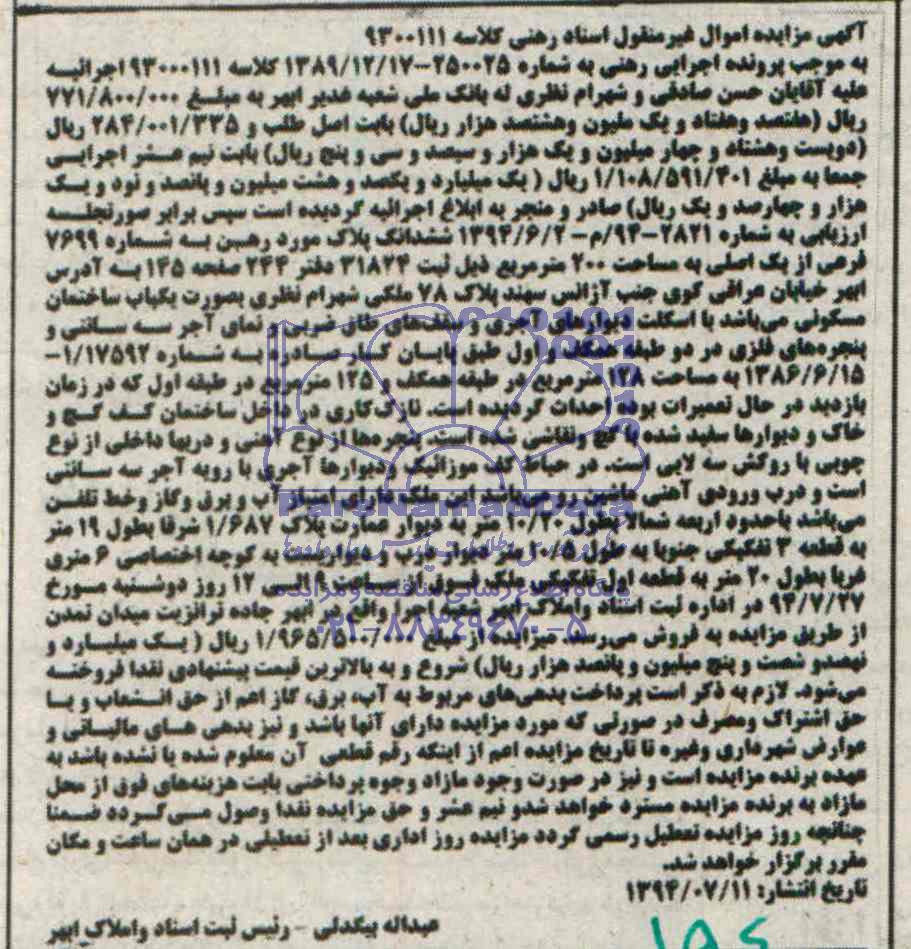 آگهی مزایده اموال غیرمنقول اسناد رهنی کلاسه ۹۳۰۰۱۱۱
به موجب پرونده اجرایی رهنی به شماره ۲۵۰۰۲۵-۱۳۸۹/۱۲/۱۷ کلاسه ۹۳۰۰۰۱۱۱ اجرائیه
علیه آقایان حسن صادقی و شهرام نظری له بانک ملی شعبه غدیر ابهر به مبلغ ۷۷۱/۸۰۰/۰۰۰
ریال (هفتصد وهفتاد و یک ملیون وهشتصد هزار ریال) بابت اصل طلب و ۲۸۴/۰۰۱/۳۳۵ ریال
(دویست وهشتاد و چهار میلیون و یک هزار و سیصد و سی و پنج ریال) بابت نیم عشر اجرایی
جمعا به مبلغ ۱/۱۰۸/۵۹۱/۴۰۱ ریال ( یک میلیارد و یکصد و هشت میلیون و پانصد و نود و یک
هزار و چهارصد و یک ریال) صادر و منجر به ابلاغ اجرائیه گردیده است سپس برابر صورتجلسه
ارزیابی به شماره ۲۸۲۱-۹۴/م- ۱۳۹۴/۶/۲ ششدانگ پلاک مورد رهن به شماره ۷۶۹۹
فرعی از یک اصلی به مساحت ۲۰۰ مترمربع ذیل ثبت ۳۱۸۲۴ دفتر ۲۴۴ صفحه ۱۴۵ به آدرس
ابهر خیابان عراقی کوی جنب آژانس سهند پلاک ۷۸ ملکی شهرام نظری بصورت یکباب ساختمان
مسکونی می‌باشد با اسکلت دیوارهای آجری و سقف‌های طاق ضربی و نمای آجر سه سانتی و
پنجره‌های فلزی در دو طبقه همکف و اول طبق پایان کار صادره به شماره ۱/۱۷۵۹۲-
۱۳۸۶/۶/۱۵ به مساحت ۱۲۸ مترمربع در طبقه همکف و ۱۲۵ مترمربع در طبقه اول که در زمان
بازدید در حال تعمیرات بوده احداث گردیده است. نازک‌کاری در داخل ساختمان کف گچ و
خاک و دیوارها سفید شده با گچ ونقاشی شده است. پنجره‌ها از نوع آهنی و دربها داخلی از نوع
چوبی با روکش سه لایی است. در حیاط کف موزائیک ودیوارها آجری با رویه آجر سه سانتی
است و درب ورودی آهنی ماشین رو می‌باشد این ملک دارای امتیاز آب و برق وگاز وخط تلفن
می‌باشد باحدود اربعه شمالا بطول ۱۰/۲۰ متر به دیوار عمارت پلاک ۱/۶۸۷ شرقا بطول ۱۹ متر
به قطعه ۳ تفکیکی جنوبا به طول ۱۰/۵ متر دیوار درب و دیواریست به کوچه اختصاصی ۶ متری
غربا بطول ۲۰ متر به قطعه اول تفکیکی ملک فوق از ساعت ۹ الی ۱۲ روز دوشنبه مورخ
۹۴/۷/۲۷ در اداره ثبت اسناد واملاک ابهر شعبه اجرا واقع در ابهر جاده ترانزیت میدان تمدن
از طریق مزایده به فروش می‌رسد مزایده از مبلغ ۱/۹۶۵/۵۰۰/۰۰۰ ریال ( یک میلیارد و
نهصدو شصت و پنج میلیون و پانصد هزار ریال) شروع و به بالاترین قیمت پیشنهادی نقدا فروخته
می‌شود. لازم به ذکر است پرداخت بدهی‌های مربوط به آب، برق، گاز اعم از حق انشعاب و یا
حق اشتراک ومصرف در صورتی که مورد مزایده دارای آنها باشد و نیز بدهی های مالیاتی و
عوارض شهرداری وغیره تا تاریخ مزایده اعم از اینکه رقم قطعی آن معلوم شده یا نشده باشد به
عهده برنده مزایده است و نیز در صورت وجود مازاد وجوه پرداختی بابت هزینه‌های فوق از محل
مازاد به برنده مزایده مسترد خواهد شدو نیم عشر و حق مزایده نقدا وصول می‌گردد ضمنا
چنانچه روز مزایده تعطیل رسمی گردد مزایده روز اداری بعد از تعطیلی در همان ساعت و مکان
مقرر برگزار خواهد شد.
تاریخ انتشار: ۱۳۹۴/۰۷/۱۱
عبداله بیگدلی - رئیس ثبت اسناد واملاک ابهر
ParsNamadData
پایگاه اطلاع رسانی مناقصه و مزایده
۰۲۱-۸۸۳۴۹۶۷۰-۵